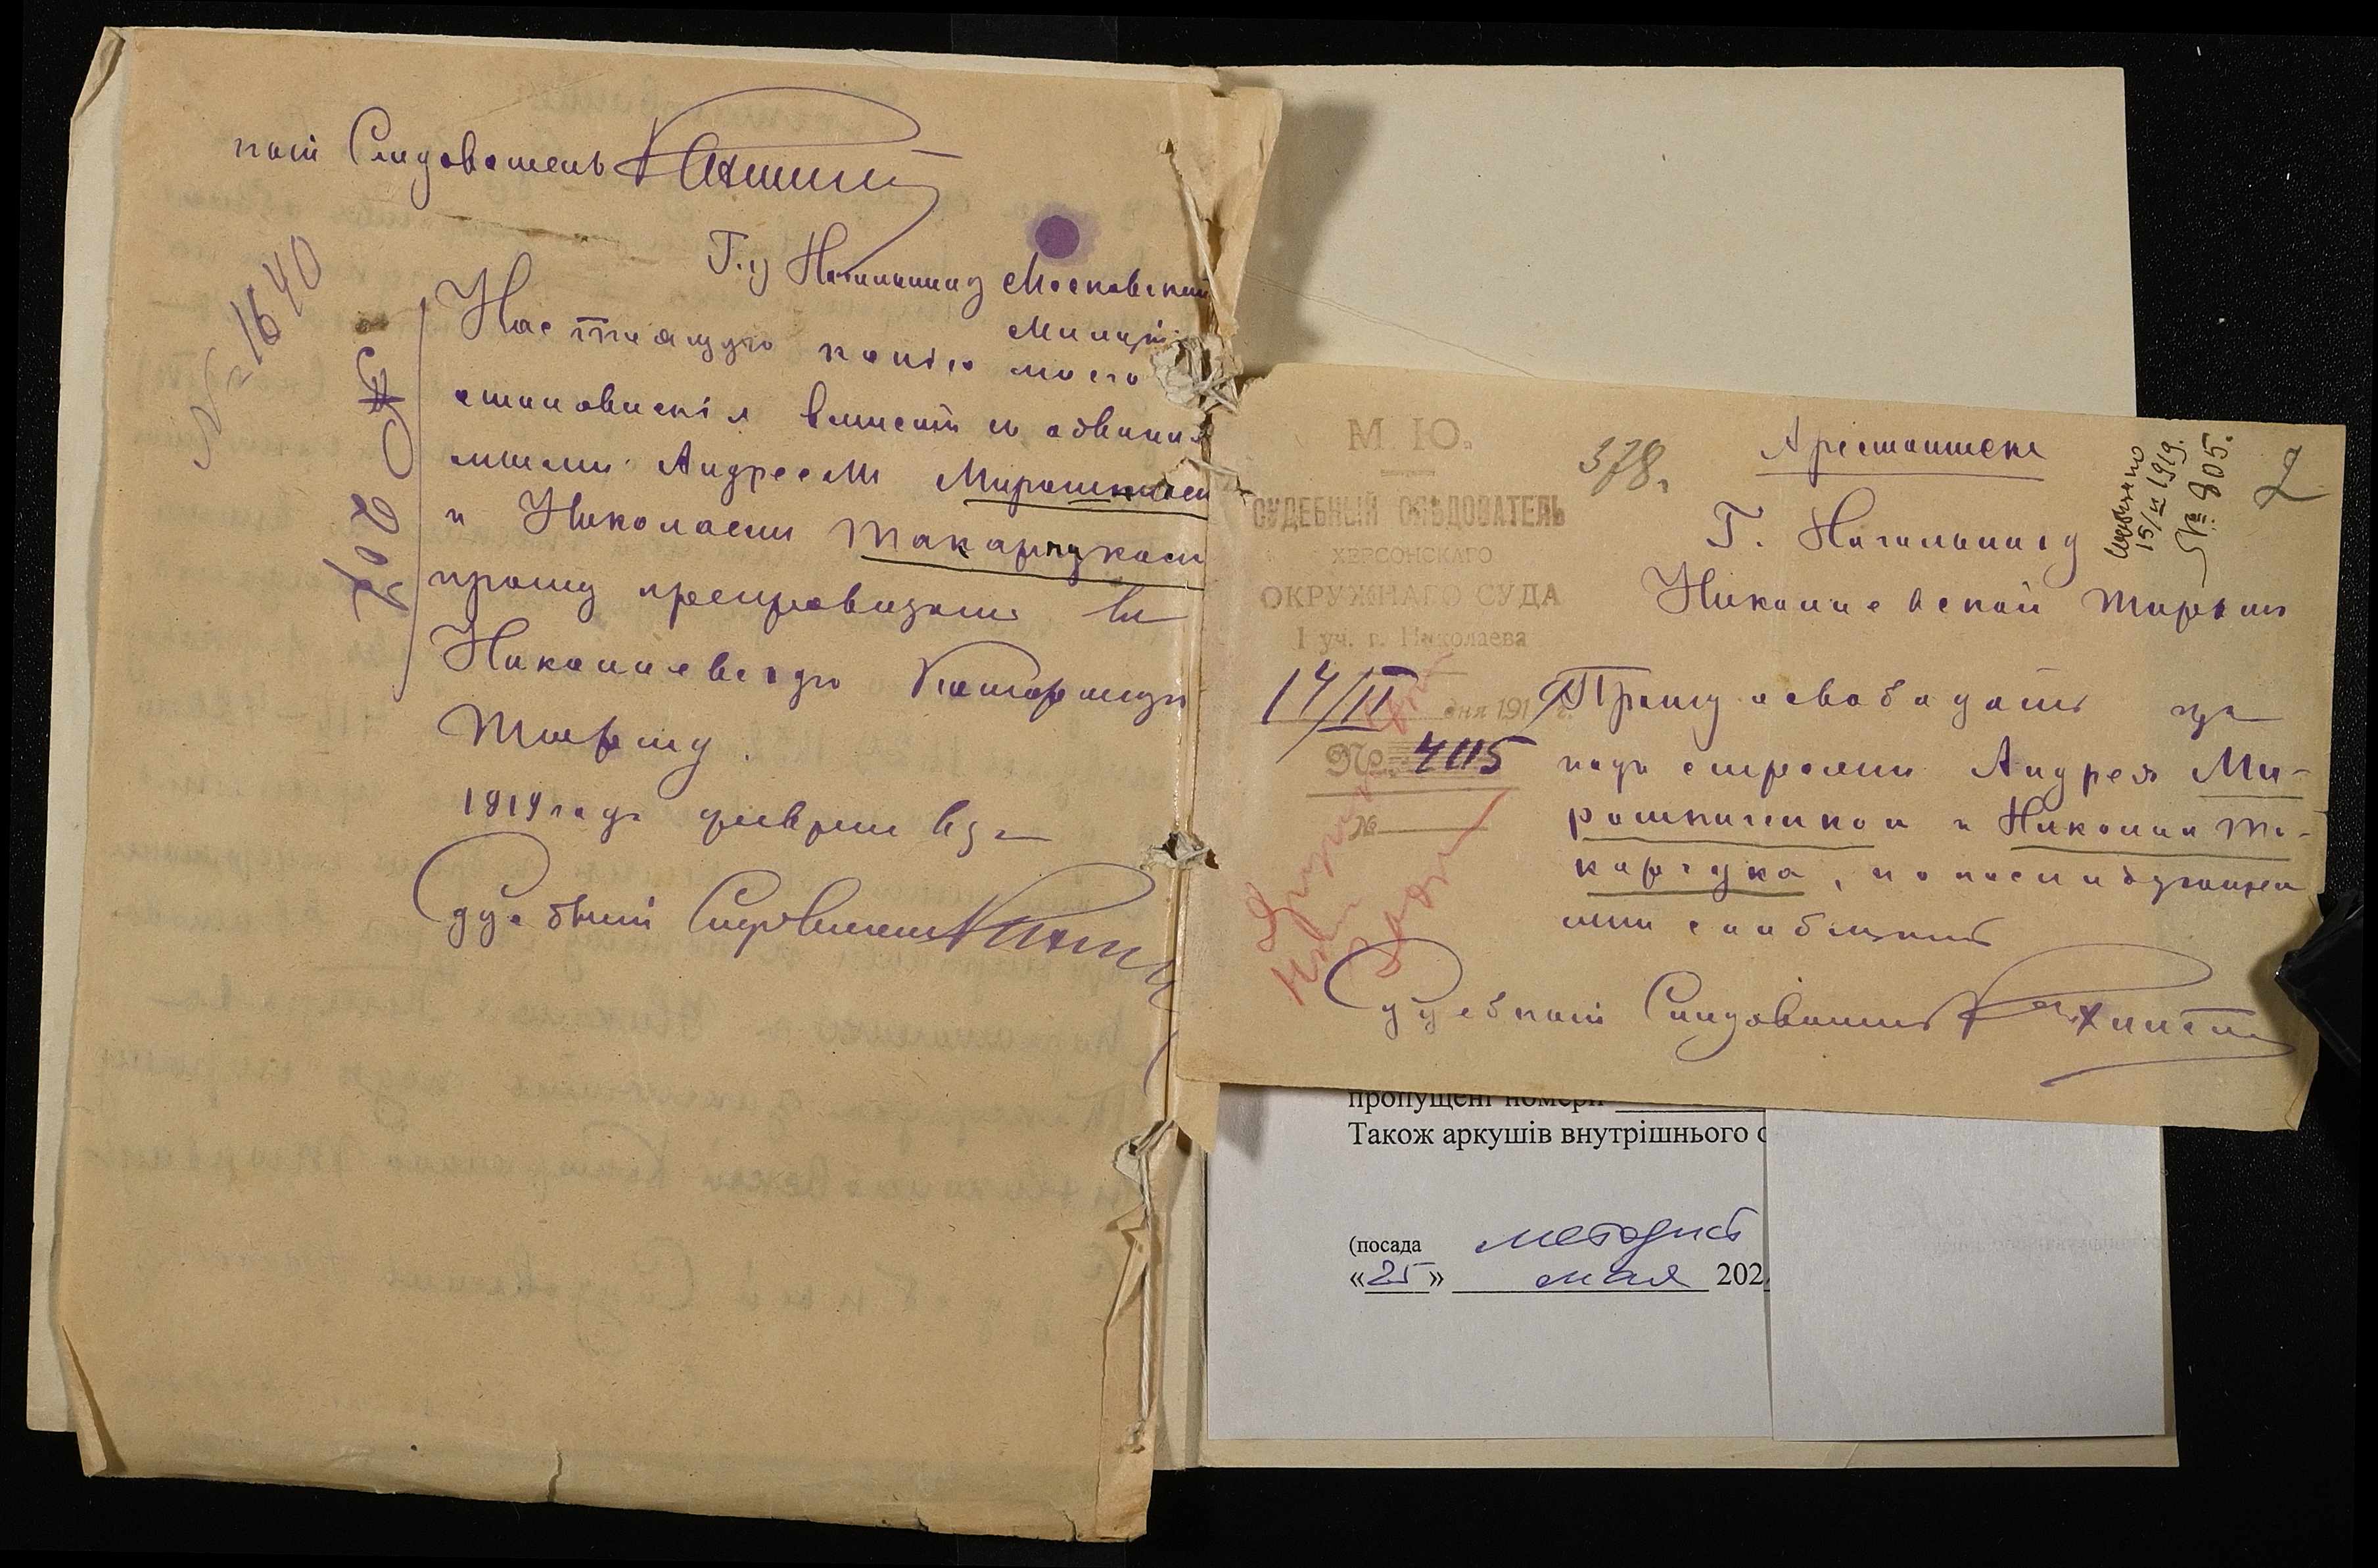 ный Следователь
№ 1640
Г.ну Начальнику Московской
Милиціи
Настоящую копію моего
становленія вмѣстѣ съ обвиня
мыми Андреемъ Мирошничен
и Николаемъ Макарчукомъ
прошу препроводить въ
Николаевскую Каторжную
Тюрьму.
1919 года февраля
Судебный Следователь
2
М. Ю.
СУДЕБНЫЙ СЛѢДОВАТЕЛЬ
ХЕРСОНСКАГО
ОКРУЖНАГО СУДА
1 уч. г. Николаева
14/II дня 191 г.
№ 4115
№
378.
Арестантское
15/II 1919.
№ 805.
Г. Начальнику
Николаевской тюрьмы
Прошу освободить изъ
подъ стражи Андрея Ми-
рошниченко и Николая Ма-
карчука, о послѣдующемъ
мнѣ сообщить
Судебный Следователь
пропущені номери
Також аркушів внутрішнього о
(посада методист
«25» мая 202